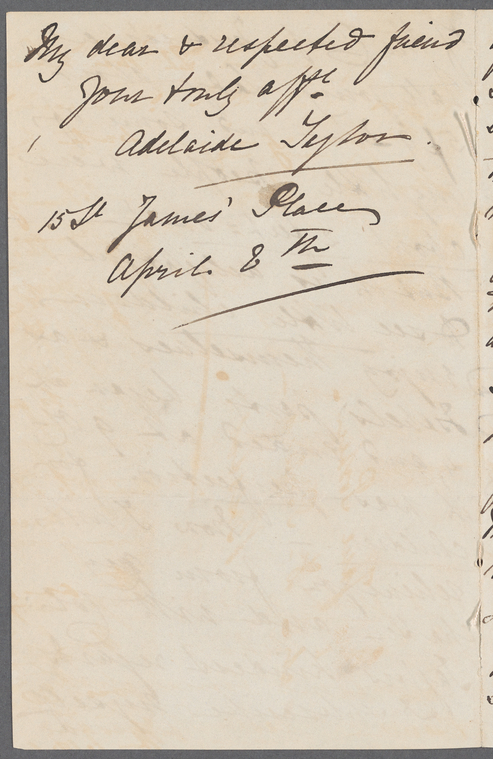 My dear & respected friend
Your truly affte
Adelaide Taylor.
15 St James' Place
April 8th